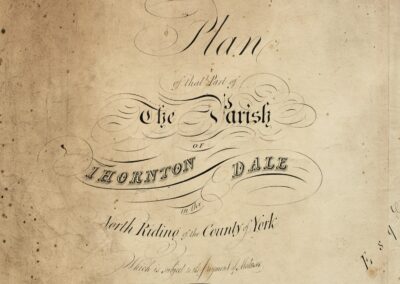 Plan
of that Part of
The Parish
OF
THORNTON DALE
in the
North Riding of the County of York
Which is subject to the Payment of